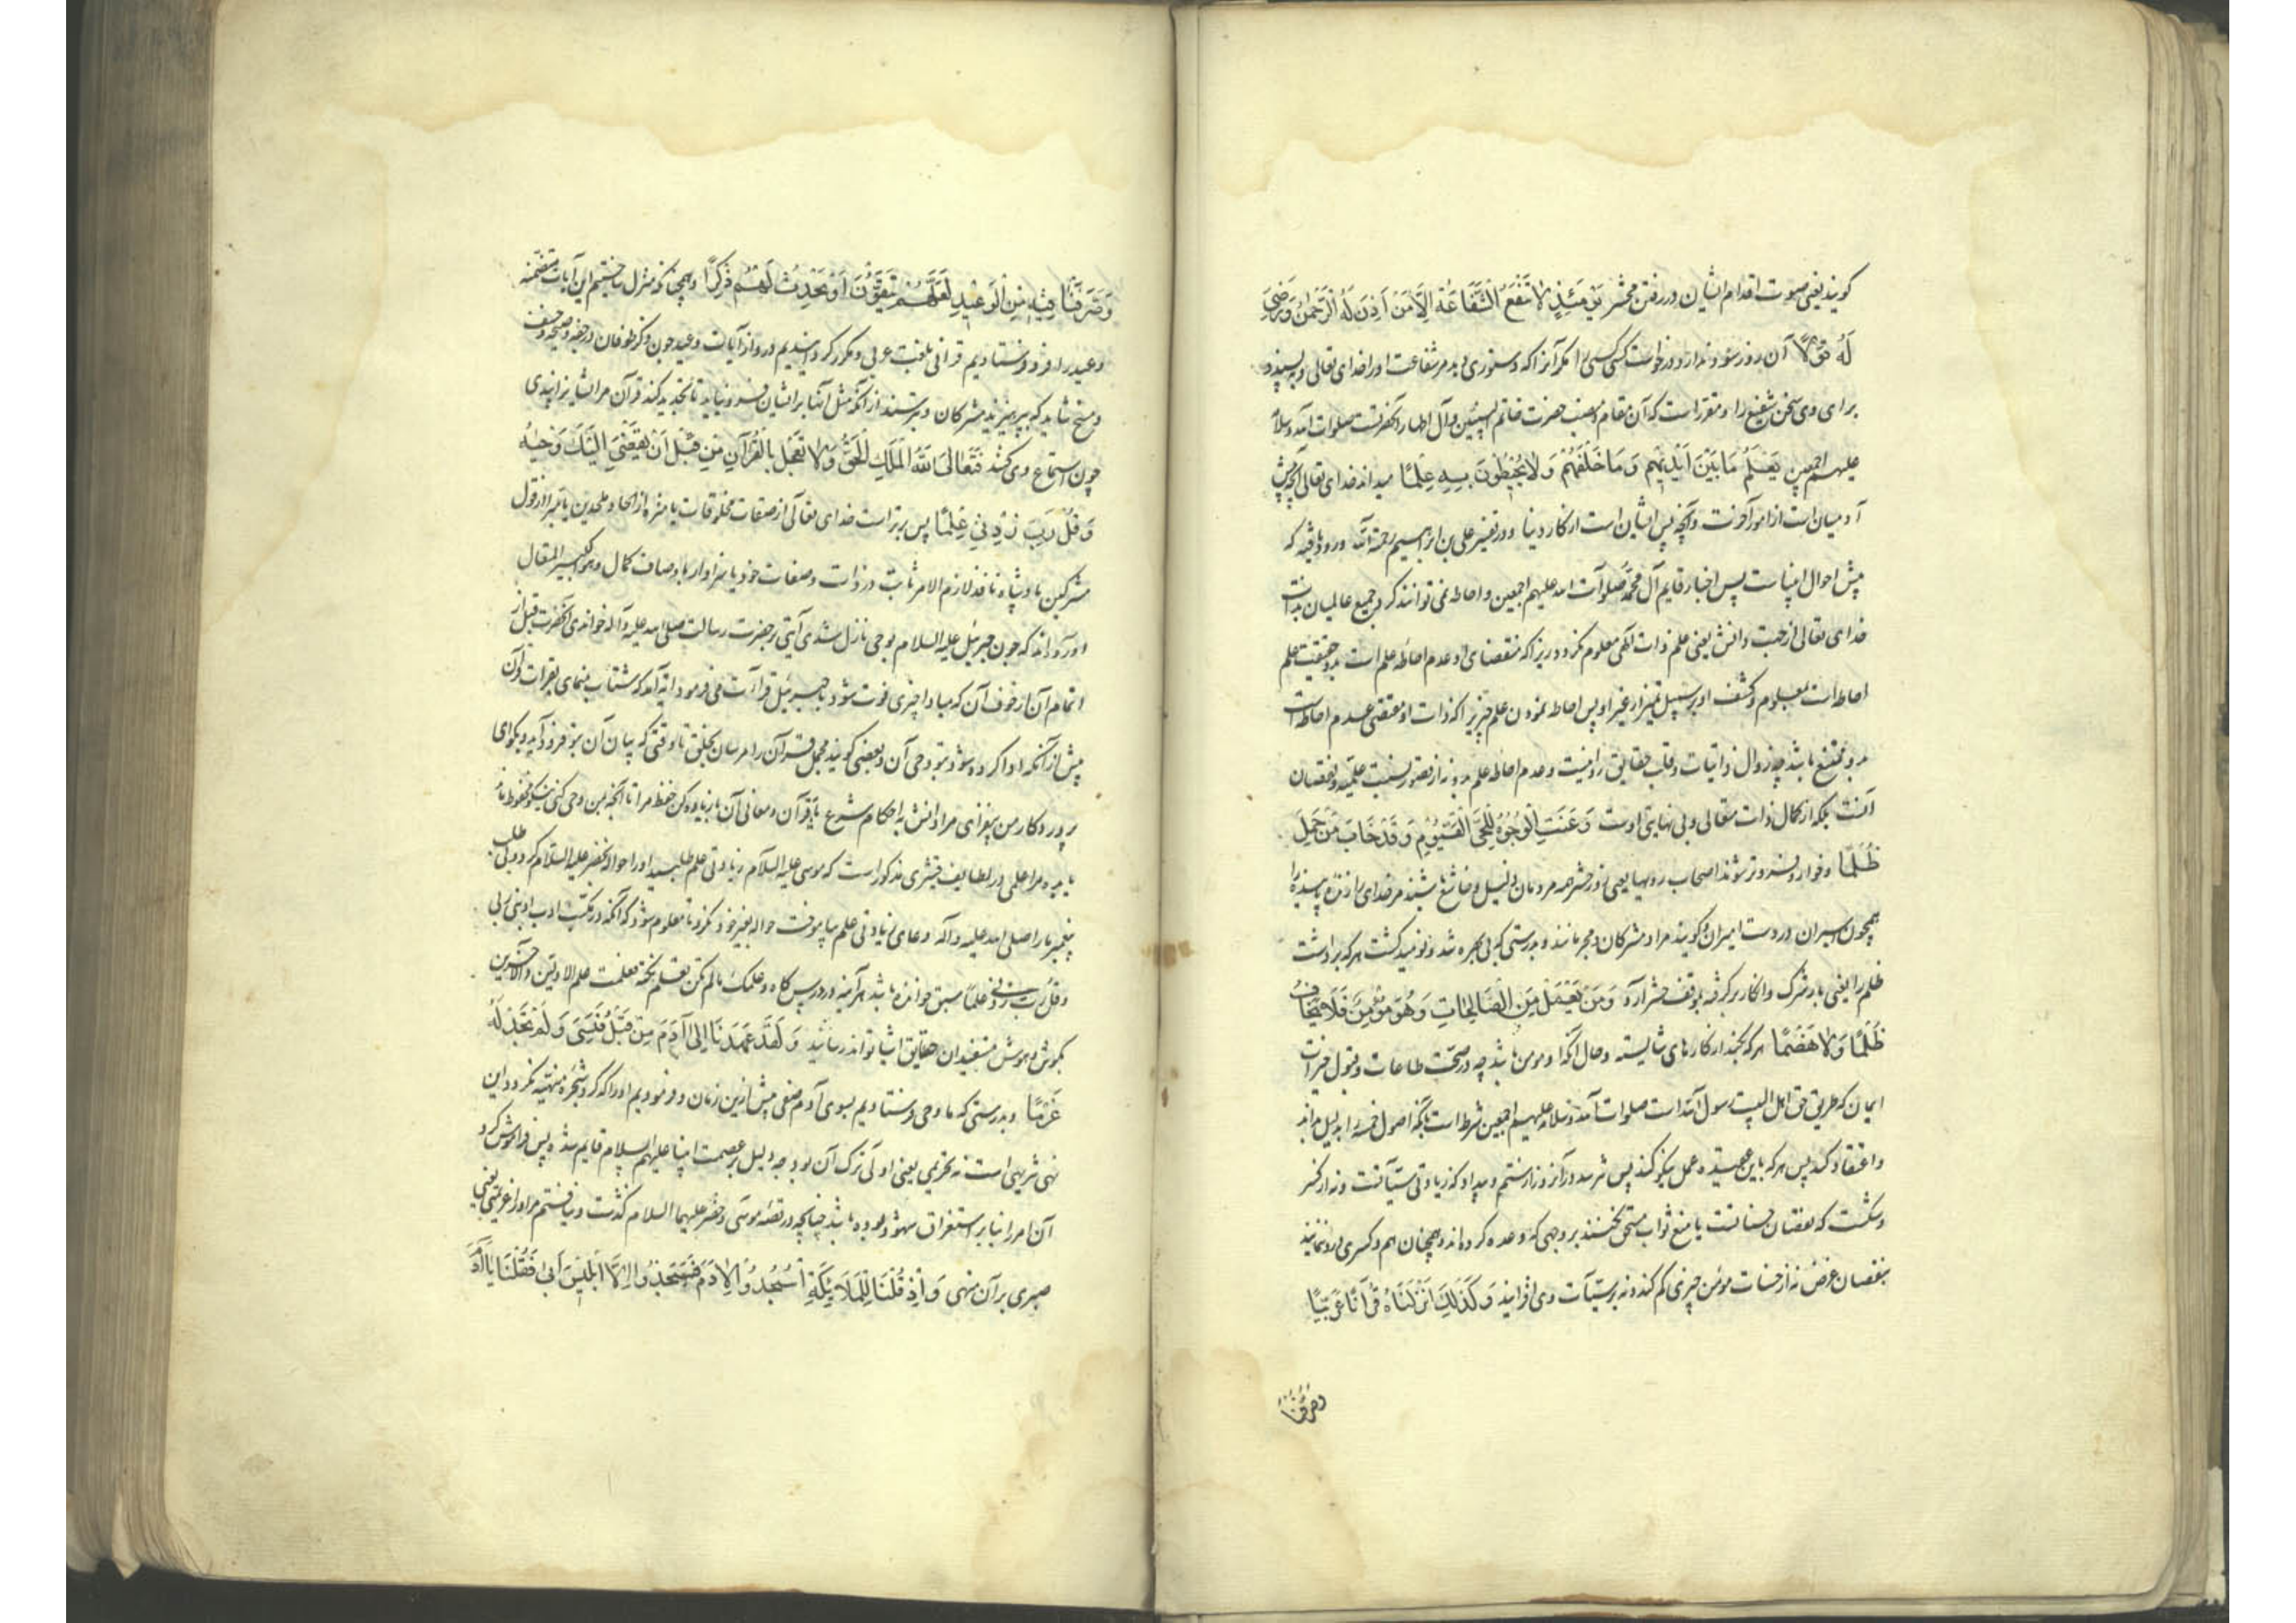 کویند یعنی صوت اقدام ایشان در رفتن محشر یَوْمَئِذٍ لَا تَنْفَعُ الشَّفَاعَةُ إِلَّا مَنْ أَذِنَ لَهُ الرَّحْمٰنُ وَرَضِیَ
لَهُ قَوْلًا آن روز سود ندارد درخواست کسی کسی را مکر آنرا که دستوری دهد مر شفاعت او را خدای تعالی و بپسندد
برای وی سخن شفیع را و مقررست که آن مقام و منصب حضرت خاتم النبیین و آل اطهار آنحضرتست صلوات الله و سلامه
علیهم اجمعین یَعْلَمُ مَا بَیْنَ أَیْدِیهِمْ وَمَا خَلْفَهُمْ وَلَا یُحِیطُونَ بِهِ عِلْمًا میداند خدای تعالی آنچه پیش
آدمیان است از امور آخرت و آنچه پس ایشان است از کار دنیا و در تفسیر علی بن ابراهیم رحمة الله ورود یافته که
پیش احوال انبیاست پس اخبار قایم آل محمد صلوات الله علیهم اجمعین و احاطه نمی توانند کرد جمیع عالمیان بذات
خدای تعالی از جهت دانش یعنی علم ذات الهی معلوم نکردد زیرا که مقتضای او عدم احاطه علم است بدو حقیقت علم
احاطه است بمعلوم و کشف او بر سبیل تمیز از غیر او پس احاطه نمودن علم چیزیرا که ذات او مقتضی عدم احاطه است
بدو ممتنع باشد چه زوال ذاتیات و قلب حقایق روا نیست و عدم احاطه علم بدو نه از قصور نسبت علمیه و نقصان
آنست بلکه از کمال ذات متعالی و بی نهایتی اوست وَعَنَتِ الْوُجُوهُ لِلْحَیِّ الْقَیُّومِ وَقَدْ خَابَ مَنْ حَمَلَ
ظُلْمًا و خوار و فروتر شوند اصحاب رویها یعنی روز حشر همه مردمان ذلیل و خاشع باشند مر خدای را زنده پاینده را
همچون اسیران در دست امیران و کویند مراد مشرکان و مجرمانند و بدرستی که بی بهره شد و نومید کشت هر که برداشت
ظلم را یعنی بار شرک و انکار بر کرفته بموقف حشر آرد وَمَنْ یَعْمَلْ مِنَ الصَّالِحَاتِ وَهُوَ مُؤْمِنٌ فَلَا یَخَافُ
ظُلْمًا وَلَا هَضْمًا هر که بکند از کارهای شایسته و حال آنکه او مومن باشد چه در صحت طاعات و قبول خیرات
ایمان که طریق حق اهل البیت رسول الله است صلوات الله و سلامه علیهم اجمعین شرط است بآنکه اصول خمسه را بدلیل داند
و اعتقاد کند پس هر که باین عقیده عمل نیکو کند پس نترسد در آن روز از ستم و بیداد که زیادتی سیآتست و نه از کسر
و شکست که نقصان حسناتست یا منع ثواب مستحق نخستند بر وجهی که وعده کرده اند و همچنان هم و کسری درو ننمایند
بنقصان عرض نه از حسنات مومن چیزی کم کند و نه بر سیئات وی افزایند وَکَذَلِکَ أَنْزَلْنَاهُ قُرْآنًا عَرَبِیًّا
وصرفنا
وَصَرَّفْنَا فِیهِ مِنَ الْوَعِیدِ لَعَلَّهُمْ یَتَّقُونَ أَوْ یُحْدِثُ لَهُمْ ذِکْرًا و همچنانکه منزل ساختیم این آیات متضمنه
وعید را فرو فرستادیم قرآنی بلغت عربی و مکرر کردانیدیم درو از آیات وعید چون ذکر طوفان و رجفه و صیحه و خسف
و مسخ شاید که بپرهیزند مشرکان و بترسند از آنکه مثل آنها بر ایشان فرود نیاید تا تجدید کند قرآن مر ایشانرا پندی
چون استماع وی کنند فَتَعَالَی اللّٰهُ الْمَلِکُ الْحَقُّ وَلَا تَعْجَلْ بِالْقُرْآنِ مِنْ قَبْلِ أَنْ یُقْضَی إِلَیْکَ وَحْیُهُ
وَقُلْ رَبِّ زِدْنِی عِلْمًا پس برترست خدای تعالی از صفات مخلوقات یا منزه از الحاد ملحدین یا مبرا از قول
مشرکین پادشاه نافذ لازم الامر ثابت در ذات و صفات خود یا سزاوار باوصاف کمال و هو الکبیر المتعال
آورده اند که چون جبرئیل علیه السلام بوحی نازل شدی آیتی بر حضرت رسالت صلی الله علیه و آله خواندی آنحضرت قبل از
اتمام آن از خوف آن که مبادا چیزی فوت شود با جبرئیل قراآت می فرمود آیه آمد که شتاب منمای بقراءت قرآن
پیش از آنکه ادا کرده شود بتو وحی آن و بعضی کویند مجمل قرآن را مرسان بخلق تا وقتی که بیان آن بتو فرود آید و بکو ای
پروردکار من بیفزای مرا دانش باحکام شرع یا قرآن و معانی آن یا زیاده کن حفظ مرا تا آنچه بمن وحی کنی نیکو محفوظ ماند
یا بده مرا علمی در لطایف قشیری مذکور است که موسی علیه السلام زیادتی علم طلبید او را حواله بخضر علیه السلام کردند و بی طلب
پیغمبر ما را صلی الله علیه و آله دعای زیادتی علم بیاموخت حواله بغیر خود نکرد تا معلوم شود که آنکه در مکتب ادب ادبنی ربی
وقل رب زدنی علمًا سبق خوانده باشد هر آینه در درس کاه و علمک مالم تکن تعلم نکته فعلمت علم الاولین والآخرین
بکوش هوش مستفیدان حقایق اشیا تواند رسانید وَلَقَدْ عَهِدْنَا إِلَی آدَمَ مِنْ قَبْلُ فَنَسِیَ وَلَمْ نَجِدْ لَهُ
عَزْمًا و بدرستی که ما وحی فرستادیم بسوی آدم صفی پیش ازین زمان و فرمودیم او را که کرد شجره منهیه نکردد این
نهی تنزیهی است نه تحریمی یعنی اولی ترک آن بود چه دلیل بر عصمت انبیا علیهم السلام قایم شده پس فراموش کرد
آن امر را بنابر استغراق سهو نموده باشد چنانچه در قصه موسی و خضر علیهما السلام کذشت و نیافتیم مر او را عزیمتی یعنی
صبری بر آن منهی وَإِذْ قُلْنَا لِلْمَلَائِکَةِ اسْجُدُوا لِآدَمَ فَسَجَدُوا إِلَّا إِبْلِیسَ أَبَی فَقُلْنَا یَا آدَمُ